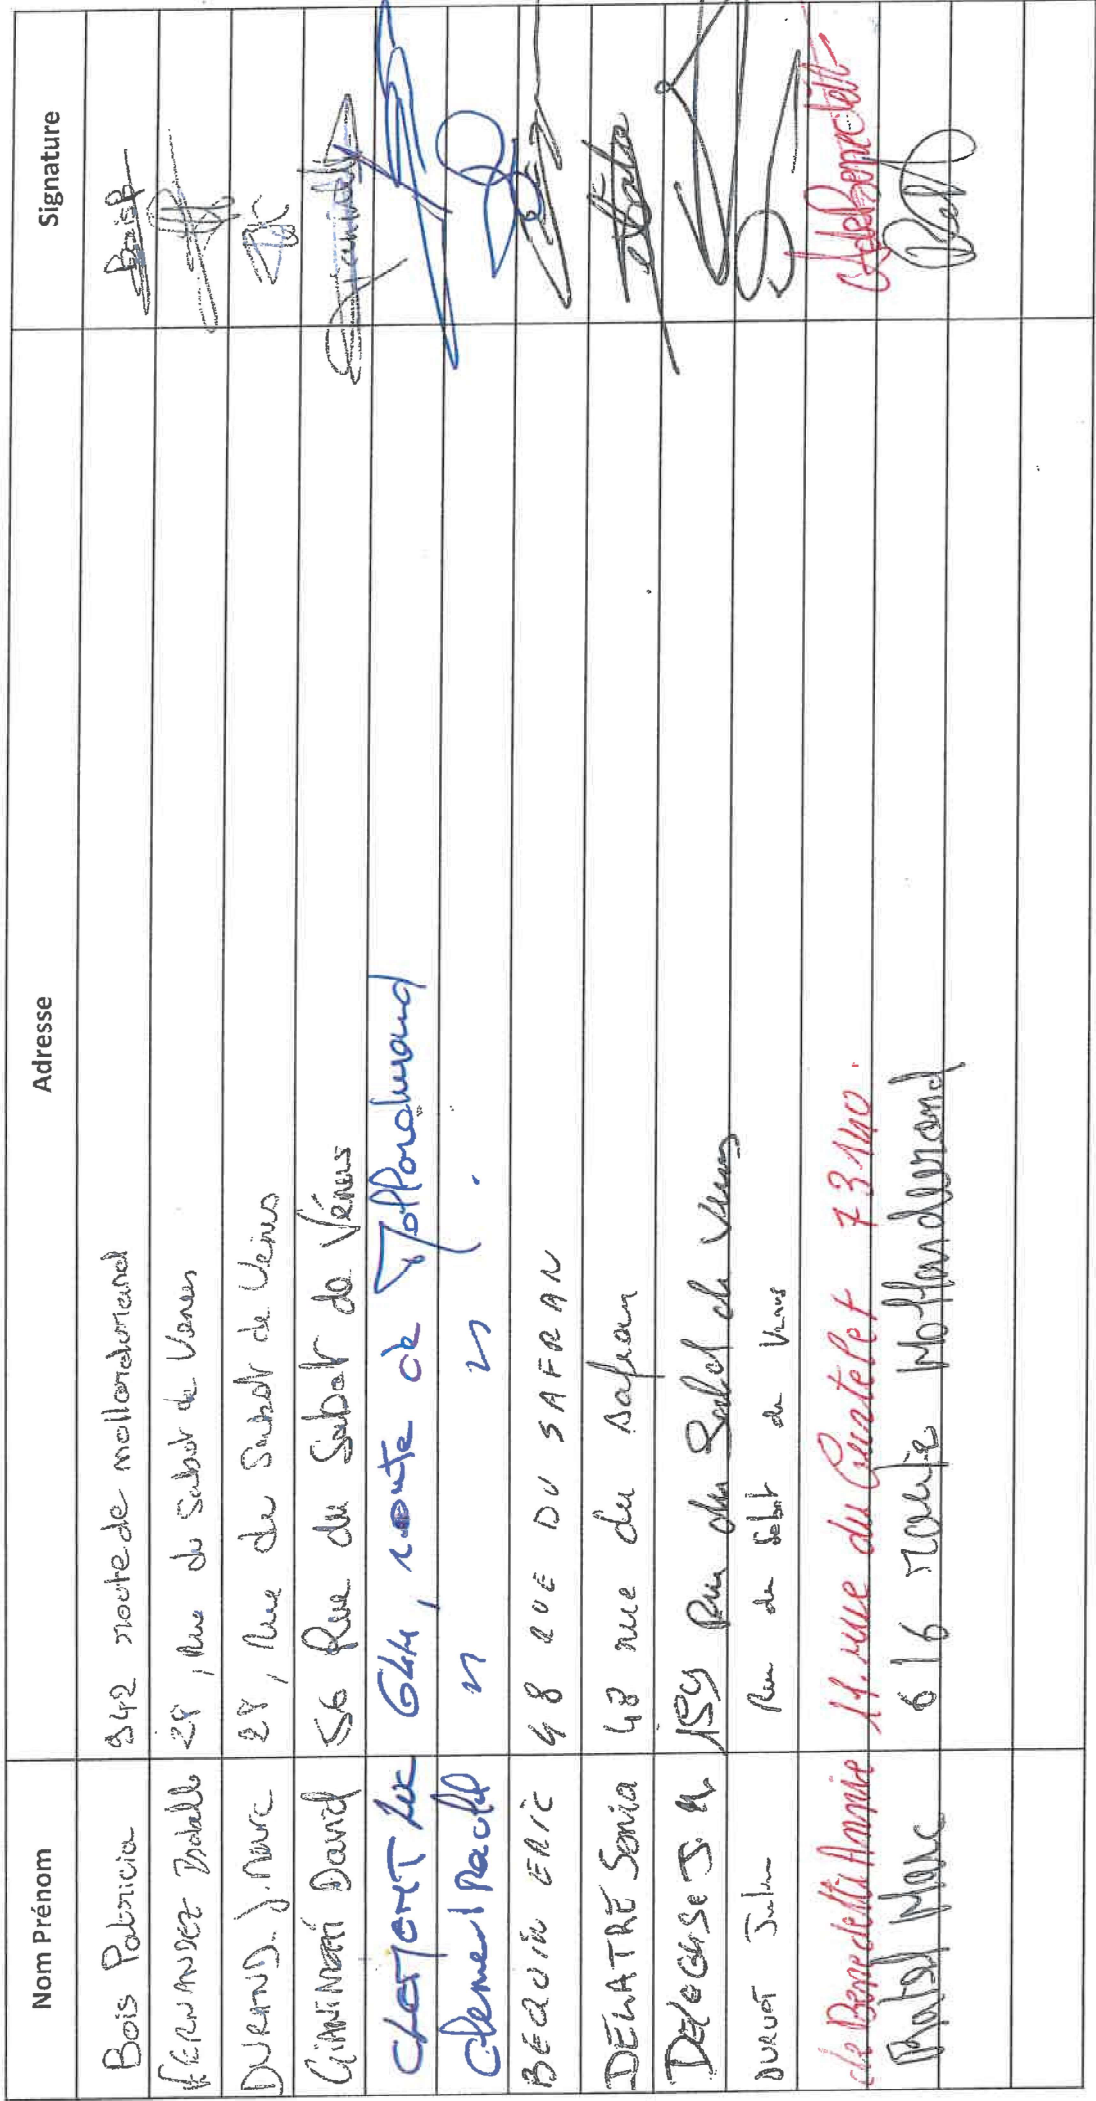 Nom Prénom Adresse Signature
Bois Patricia 942 route de mollarddurand BoisP
FERNANDEZ Isabelle 28, Rue du Sabot de Venus
DURAND J. Marc 28, Rue du Sabot de Vénus
David 56 Rue du Sabot de Vénus
CLEMENT Luc 644, route de Mollardurand
Clement Rachel " "
BEQUIN ERIC 48 RUE DU SAFRAN
DELATRE Sonia 48 rue du safran
DELEGLISE J. M. 159 Rue du Sabot de Venus
Julien Rue du Sabot de Venus
de Benedetti Annie 11. rue du 73140.
Ratel Marc 616 route Mollardurand